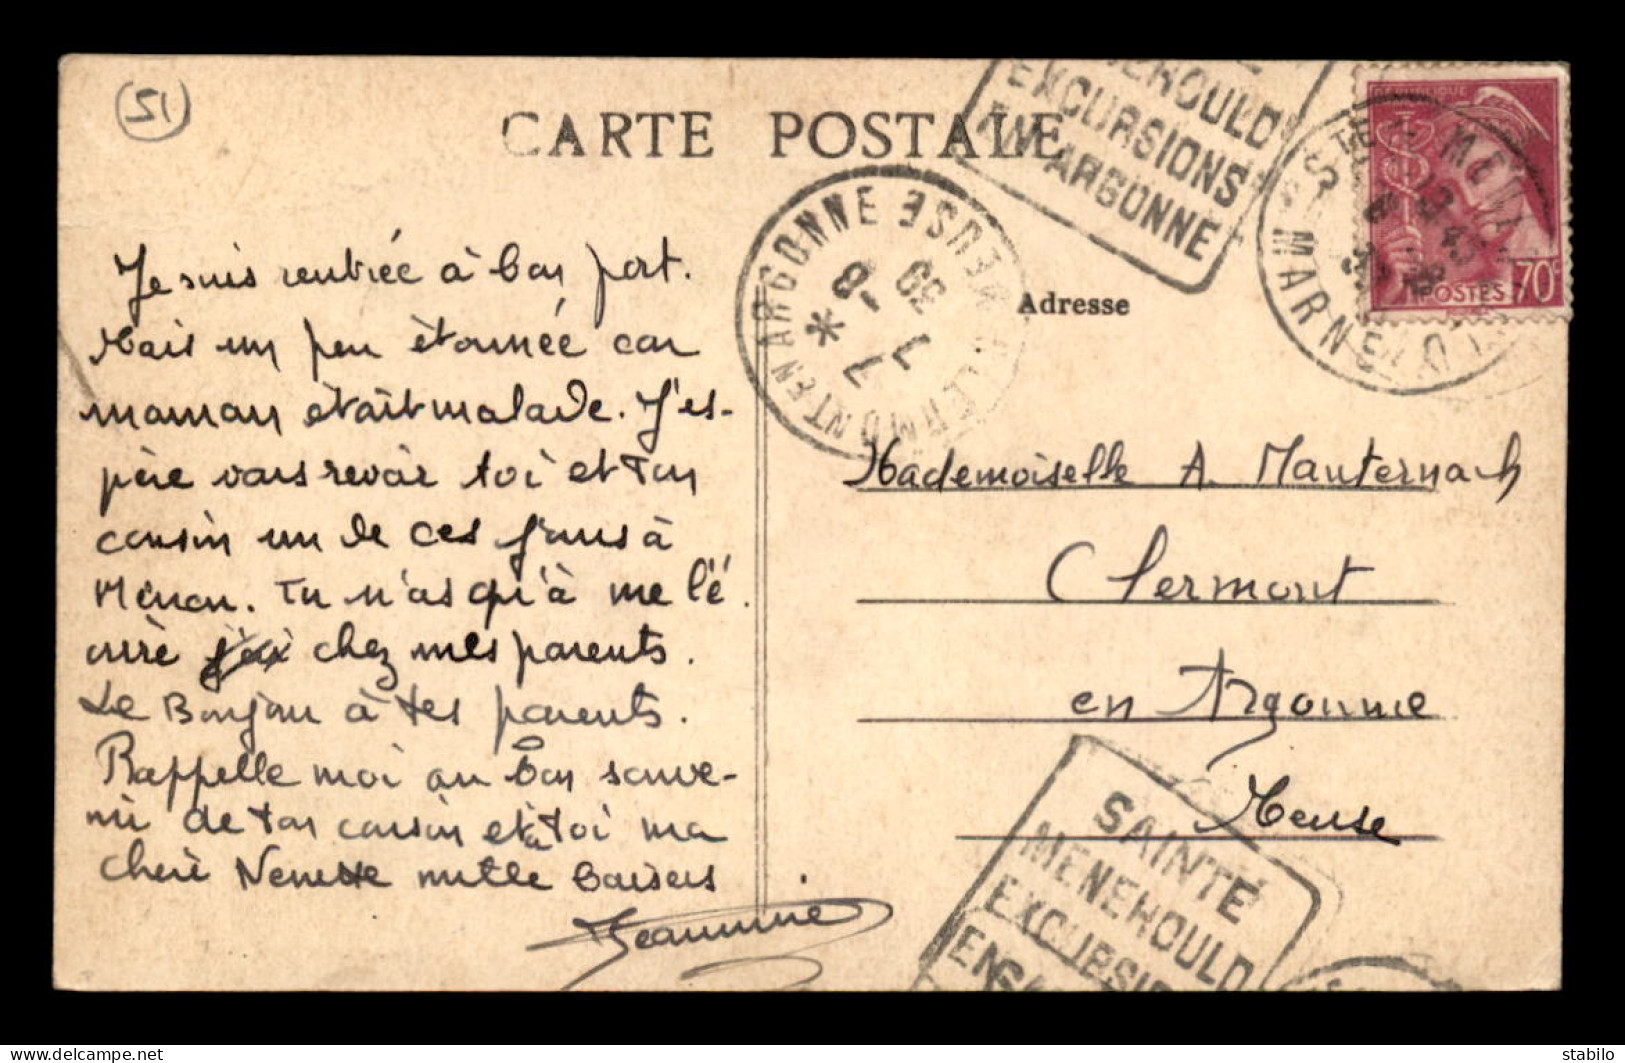 51
CARTE POSTALE
MENEHOULD
EXCURSIONS
EN ARGONNE
RÉPUBLIQUE
POSTES 70c
STE MENEHOULD
MARNE
CLERMONT EN ARGONNE MEUSE
7 - 8
7
39
Adresse
Je suis rentrée à bon port.
Mais un peu étonnée car
maman était malade. J'es-
père vous revoir toi et ton
cousin un de ces jours à
Tu n'as qu'à me l'é
crire j'ai chez mes parents.
Le Bonjour à tes parents.
Rappelle moi au bon souve-
nir de ton cousin et à toi ma
chère Nenette mille baisers
Jeannine
Mademoiselle A. Mauternach
Clermont
en Argonne
Meuse
SAINTE
MENEHOULD
EXCURSIO
EN
delcampe.net
stabilo